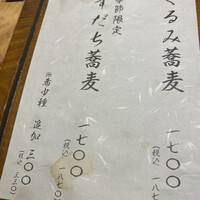 くるみ蕎麦
一七〇〇
(税込 一八七
季節限定
すだち蕎麦
一七〇〇
(税込 一八七〇
追加 三〇〇
(税込 三三〇)